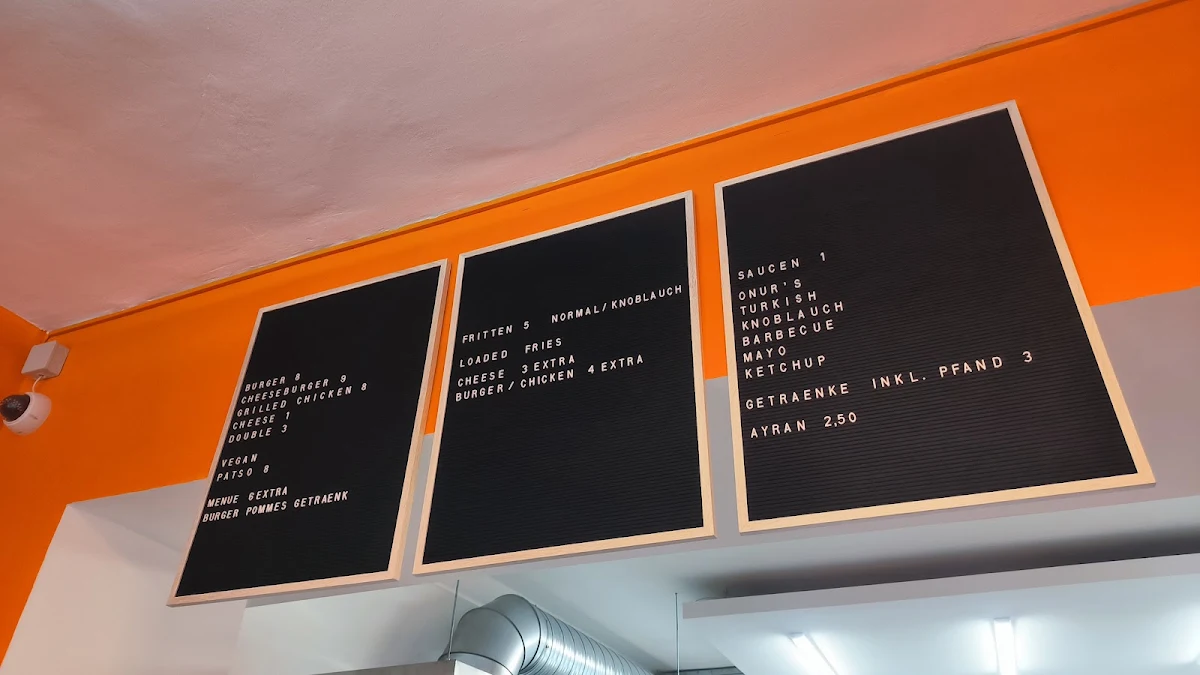 BURGER 8
CHEESEBURGER 9
GRILLED CHICKEN 8
CHEESE 1
DOUBLE 3
VEGAN
PATSO 8
MENUE 6 EXTRA
BURGER POMMES GETRAENK
FRITTEN 5 NORMAL/KNOBLAUCH
LOADED FRIES
CHEESE 3 EXTRA
BURGER/CHICKEN 4 EXTRA
SAUCEN 1
ONUR'S
TURKISH
KNOBLAUCH
BARBECUE
MAYO
KETCHUP
GETRAENKE INKL. PFAND 3
AYRAN 2,50